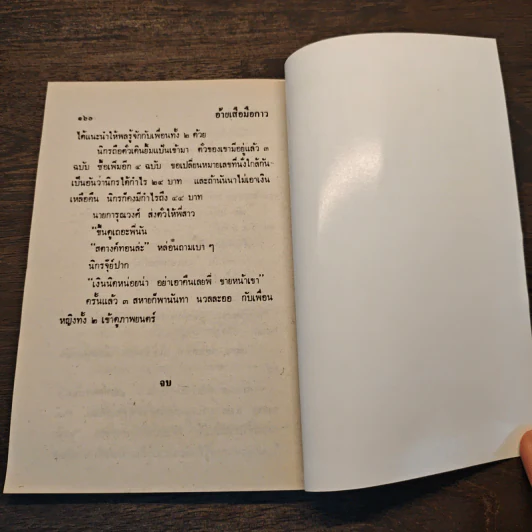 ๑๖๖ อ้ายเสือมือกาว
ได้แนะนำให้พลรู้จักกับเพื่อนทั้ง ๒ ด้วย
นิกรถือตั๋วเดินยิ้มแป้นเข้ามา ตั๋วของเขามีอยู่แล้ว ๓
ฉบับ ซื้อเพิ่มอีก ๔ ฉบับ ขอเปลี่ยนหมายเลขที่นั่งใกล้กัน
เป็นอันว่านิกรได้กำไร ๒๔ บาท และถ้านันนาไม่เอาเงิน
เหลือคืน นิกรก็คงมีกำไรถึง ๔๔ บาท
นายการุณวงศ์ ส่งตั๋วให้พี่สาว
"ขึ้นดูเถอะพี่นัน
"สตางค์ทอนล่ะ" หล่อนถามเบา ๆ
นิกรจุ๊ย์ปาก
"เงินนิดหน่อยน่า อย่าเอาคืนเลยพี่ ขายหน้าเขา"
ครั้นแล้ว ๓ สหายก็พานันทา นวลละออ กับเพื่อน
หญิงทั้ง ๒ เข้าดูภาพยนตร์
จบ